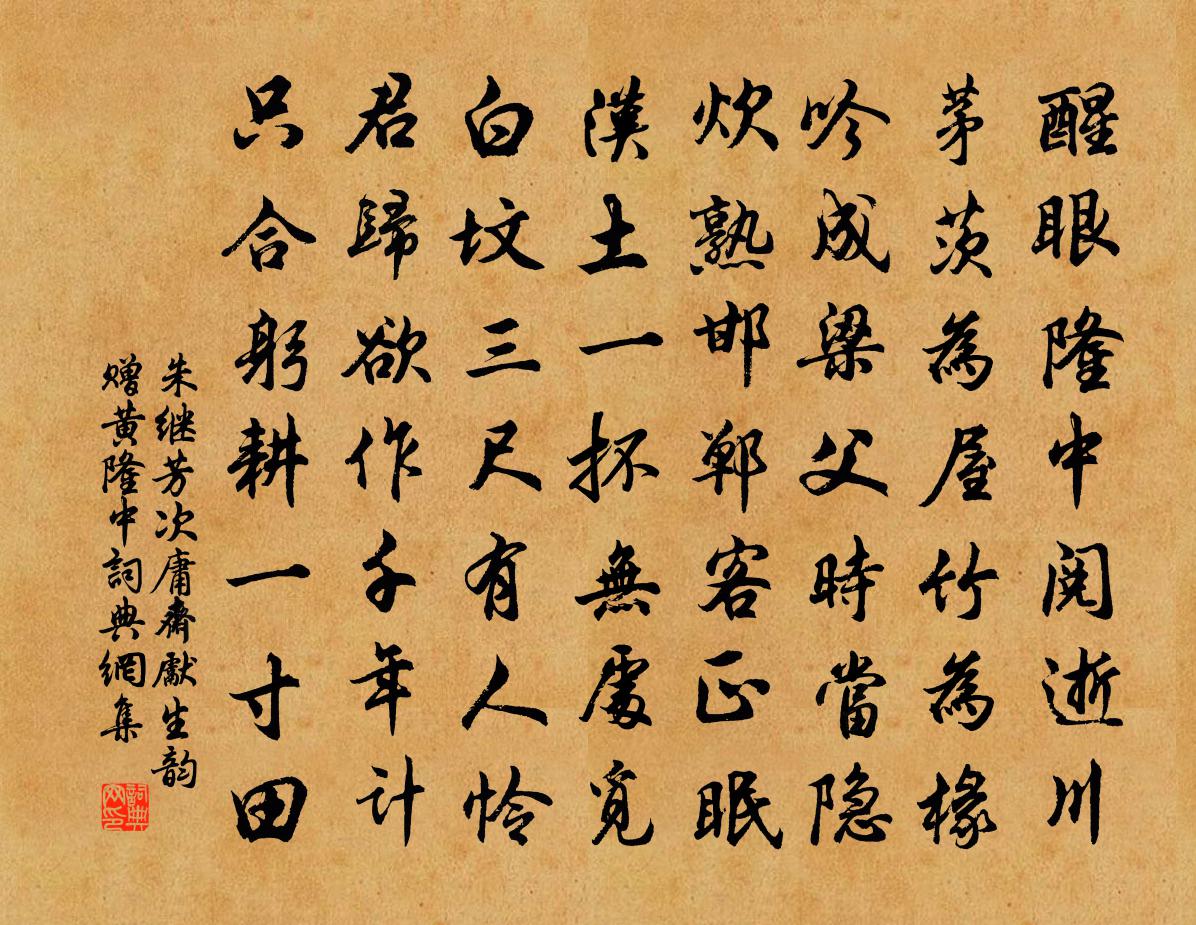 醒眼隆中閱逝川
茅茨為屋竹為椽
吟成梁父時當隐
炊熟邯鄲客正眠
漢土一抔無處覓
白坟三尺有人怜
君歸欲作千年计
只合躬耕一寸田
朱继芳次庸齋獻生韵
赠黄隆中詞典網集
詞典網印